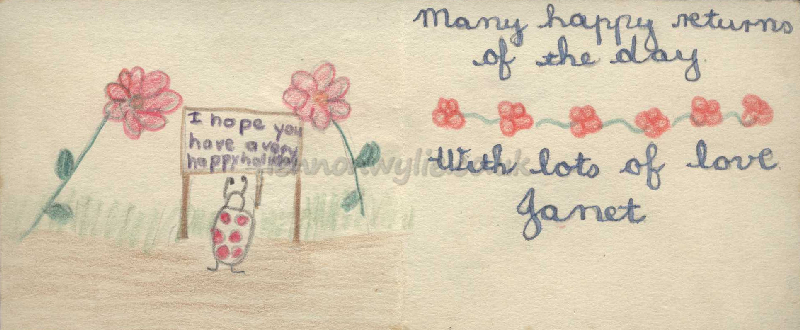 I hope you
have a very
happy holiday
Many happy returns
of the day
With lots of love
Janet